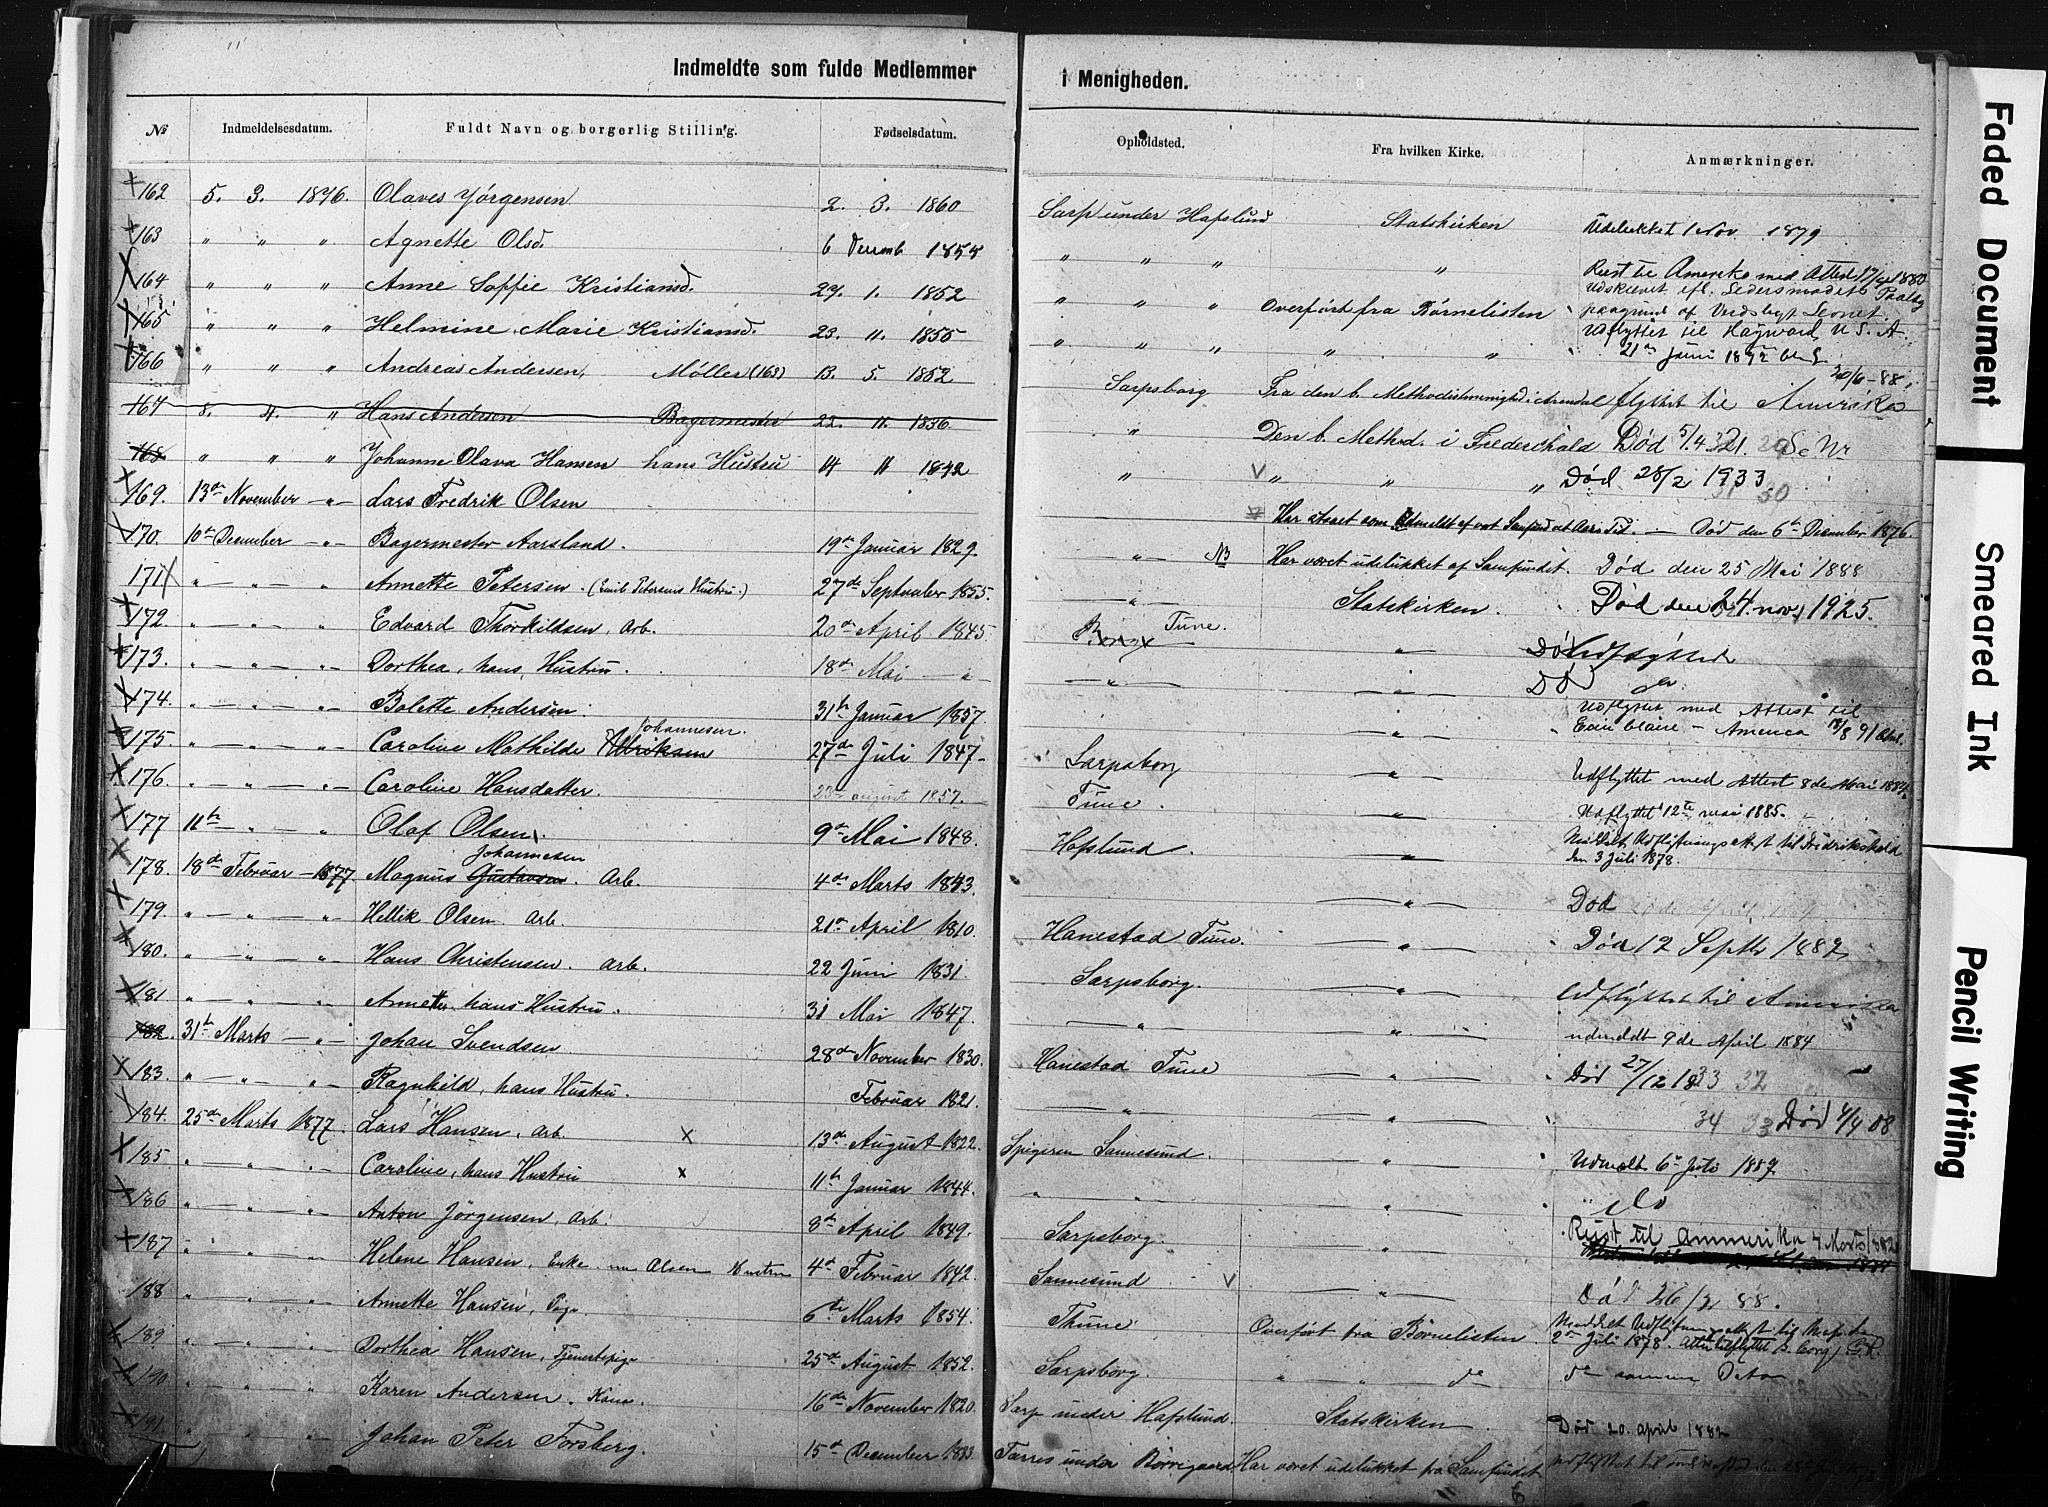 Indmeldte som fulde Medlemmer i Menigheden.
№ Indmeldelsesdatum. Fuldt Navn og borgerlig Stilling. Fødselsdatum. Opholdsted. Fra hvilken Kirke. Anmærkninger.
162 5. 3. 1876. Olaves Jørgensen 2. 3. 1860 Sarp under Hafslund Statskirken Udelukket 1 Nov 1879
163 " " " Agnette Olsd. 6 Decemb 1855 " " " " Reist til Amerika med Attest 17/4 1880
164 " " " Anne Soffie Kristiansd. 29. 1. 1852 " " " Overført fra Børnelisten
165 " " " Helmine Marie Kristiansd. 23. 11. 1855 " " " " " Udflyttet til Hayward U. S. A. 21de Juni 1892
166 " " " Andreas Andersen, Møller (163) 13. 5. 1852 Sarpsborg Fra den b. Methodistmenighed i Arendal flyttet til Amerika 20/6-88
167 8. 4. " Hans Andersen Bagermester 22. 11. 1836 " Den b. Method. i Frederikhald Død 5/4. 21.
168 " " " Johanne Olava Hansen hans Hustru 14 11 1842 " V " " " Død 28/2 1933 31 30
169. 13de November " Lars Fredrik Olsen Har staaet som Udmeldt af vort Samfund et Aars Tid. — Død den 6te December 1876.
170. 10de December " Bagermester Aarsland. 19de Januar 1829. " NB Har været udelukket af Samfundet. Død den 25 Mai 1888
171 " " " Annette Petersen. (Emil Petersens Hustru.) 27de September 1855. " Statskirken. Død den 24. nov. 1925.
172 " " " Edvard Thorkildsen, Arb. 20de April 1845 Tune. " Udflyttede
173. " " " Dorthea, hans Hustru. 18de Mai " " " Død do
174. " " " Bolette Andersen. 31te Januar 1857. " Udflyttet med Attest til Eau Claire - America 18/8 91
175. " " " Caroline Mathilde Ulriksen Johannesen 27de Juli 1847 Sarpsborg " Udflyttet med Attest 8de Mai 1884.
176. " " " Caroline Hansdatter. 25de august 1857. Tune. " Udflyttet 12te mai 1885.
177 11te " " Olaf Olsen. 9de Mai 1848. Hafslund. " Meddelt Udflytningsattest til Fredrikshald den 3 Juli 1878.
178. 18de Februar 1877. Magnus Gustavsen Johannesen Arb. 4de Marts 1843. " Død
179. " " " Hellik Olsen Arb. 21de April 1810. Hanestad Tune. " Død 12 Septbr 1882
180. " " " Hans Christensen. Arb. 22 Juni 1831. Sarpsborg. " Udflyttet til Amerika
181 " " " Annette, hans Hustru. 31 Mai 1847. " " udmeldt 9de April 1884
182. 31te Marts " Johan Svendsen 28de November 1830. Hanestad Tune " Død 27/12 1833 32
183. " " " Ragnhild, hans Hustru. Februar 1821. " " 34 33 Død 4/4 08
184. 25de Marts 1877. Lars Hansen, Arb. x 13de August 1822. Spigeren Sannesund. " Udmeldt 6te Juli 1887
185 " " " Caroline, hans Hustru x 11te Januar 1844. " " " do
186 " " " Anton Jørgensen, Arb. 8de April 1849. Sarpsborg. " Reist til Ammerika 4 Marts 1882
187 " " " Helene Hansen, Enke nu Olsen Hustru 4de Februar 1842. Sannesund V " Død 26/2 88.
188 " " " Annette Hansen, Pige 6te Marts 1854. Thune Overført fra Børnelisten. Meddelt Udflytningsattest 2den Juli 1878.
189. " " " Dorthea Hansen, Tjenestepige 25de August 1852. Sarpsborg. " " do do samme Dato
190 " " " Karen Andersen. Kone. 16de November 1820. Sarp under Hafslund. Statskirken. Død 20. april 1882
191. " " " Johan Peter Forsberg. 15de December 1833. Torres under Borregaard Har været udelukket fra Samfundet
Faded Document
Smeared Ink
Pencil Writing